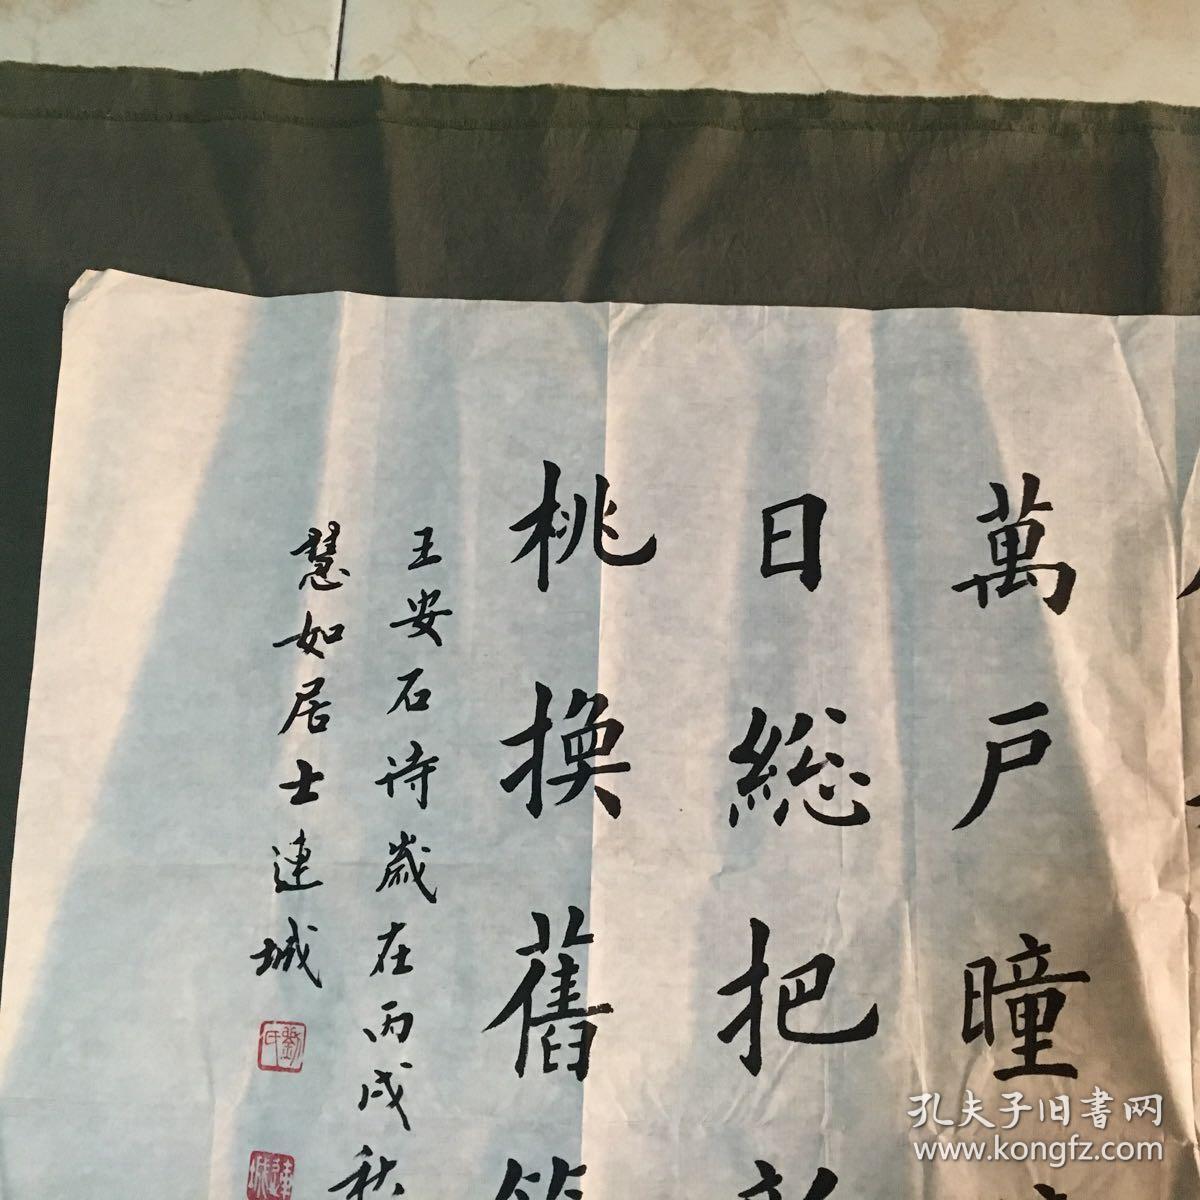 萬戶曈
日総把新
桃換舊
王安石诗歲在丙戌秋
慧如居士連城
劉氏
連城
孔夫子旧書网
www.kongfz.com